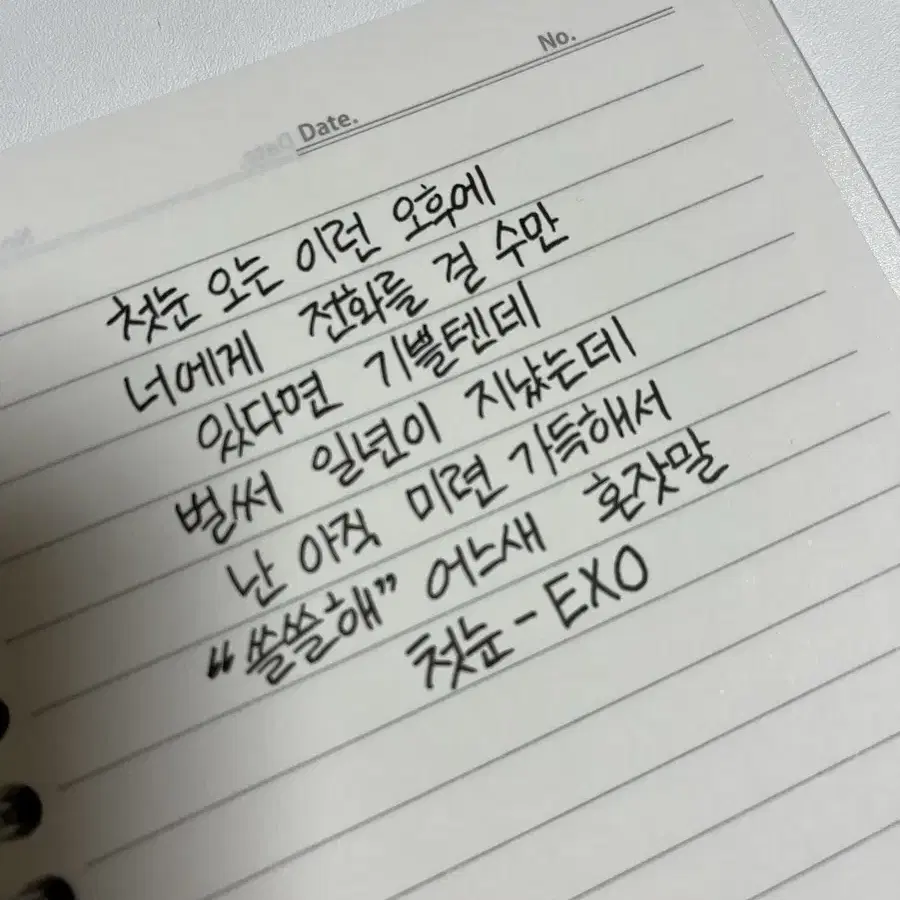 No.
Date.
첫눈 오는 이런 오후에
너에게 전화를 걸 수만
있다면 기쁠텐데
벌써 일년이 지났는데
난 아직 미련 가득해서
“쓸쓸해” 어느새 혼잣말
첫눈 - EXO